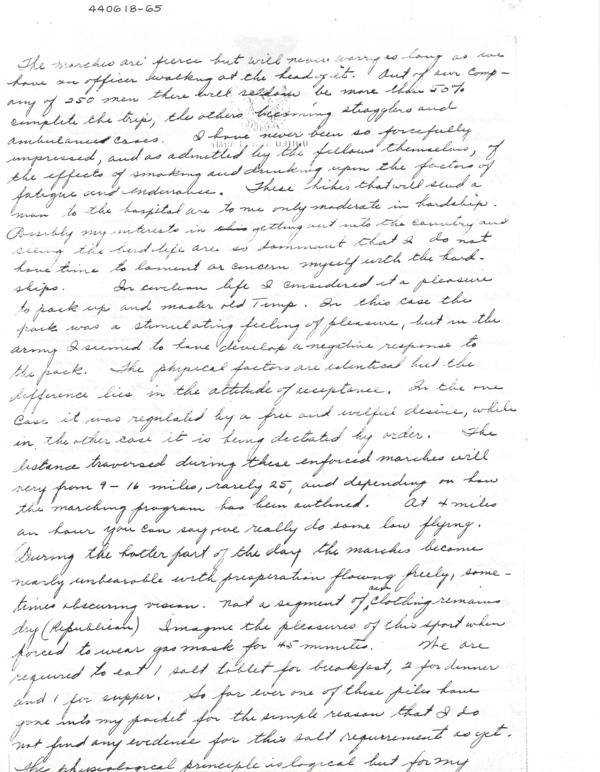 440618-65
The marches are fierce but will never worry so long as we
have an officer walking at the head of it. Out of our comp-
any of 250 men there will seldom be more than 50%
complete the trip, the others becoming stragglers and
ambulance cases. I have never been so forcefully
impressed, and as admitted by the fellows themselves, of
the effects of smoking and drinking upon the factors of
fatigue and endurance. These hikes that will send a
man to the hospital are to me only moderate in hardship.
Possibly my interests in this getting out into the country and
seeing the bird life are so dominant that I do not
have time to lament or concern myself with the hard-
ships. In civilian life I considered it a pleasure
to pack up and master old Timp. In this case the
pack was a stimulating feeling of pleasure, but in the
army I seemed to have develop a negitive response to
the pack. The physical factors are identical but the
difference lies in the attitude of acceptance. In the one
case it was regulated by a free and wilful desire, while
in the other case it is being dectated by order. The
distance traversed during these enforced marches will
very from 9 - 16 miles, rarely 25, and depending on how
the marching program has been outlined. At 4 miles
an hour you can say, we really do some low flying.
During the hotter part of the day the marches become
nearly unbearable with presperation flowing freely, some-
times obscuring vision. Not a segment of our clothing remains
dry (Republican) Imagine the pleasures of this sport when
forced to wear gas mask for 45 minutes. We are
required to eat 1 salt tablet for breakfast, 2 for dinner
and 1 for supper. So far ever one of these pills have
gone into my pocket for the simple reason that I do
not find any evidence for this salt requirement as yet.
The physiological principle is logical but for my